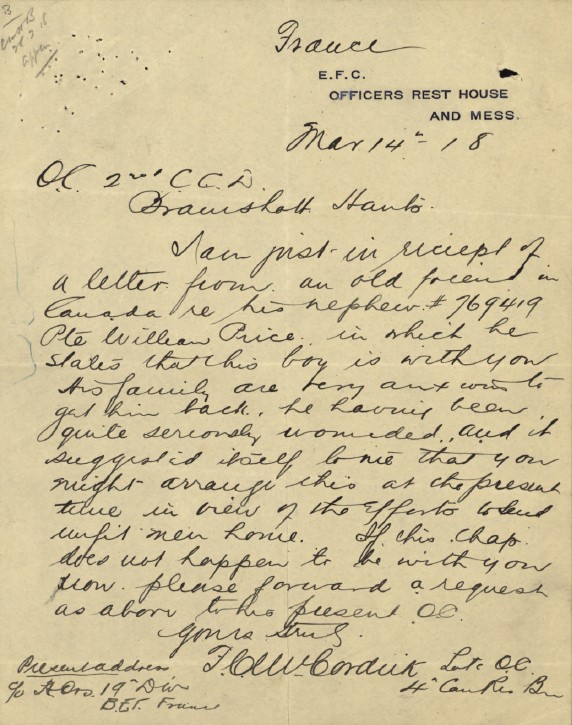 France
E.F.C.
OFFICERS REST HOUSE
AND MESS.
Mar 14th - 18
O.C. 2nd C C D.
Bramshott Hants.
I am just in reciept of
a letter from an old friend in
Canada re his nephew # 769419
Pte William Price, in which he
states that this boy is with you
His family are very anxious to
get him back, he having been
quite seriously wounded, and it
suggested itself to me that you
might arrange this at the present
time in view of the efforts to send
unfit men home. If this chap
does not happen to be with you
now please forward a request
as above to his present OC.
Yours truly
F.C. McCordick Late O.C.
4th Can Res Bn
Present address
c/o H. Qrs. 19th Div
B.E.F. France